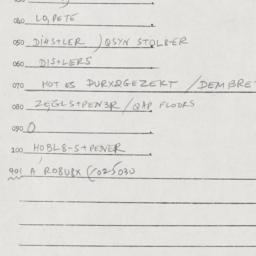 040 LO,PETE
050 DIASTLER ) QSYN STOLBER
060 DISTLERS
070 HOT ES DURXQGEZERT / DEMBRE
080 ZEGLS+PEN3R / QAP FLODRS
090 O
100 HOBL8-S+PENER
901 A ROBUBX (/025030